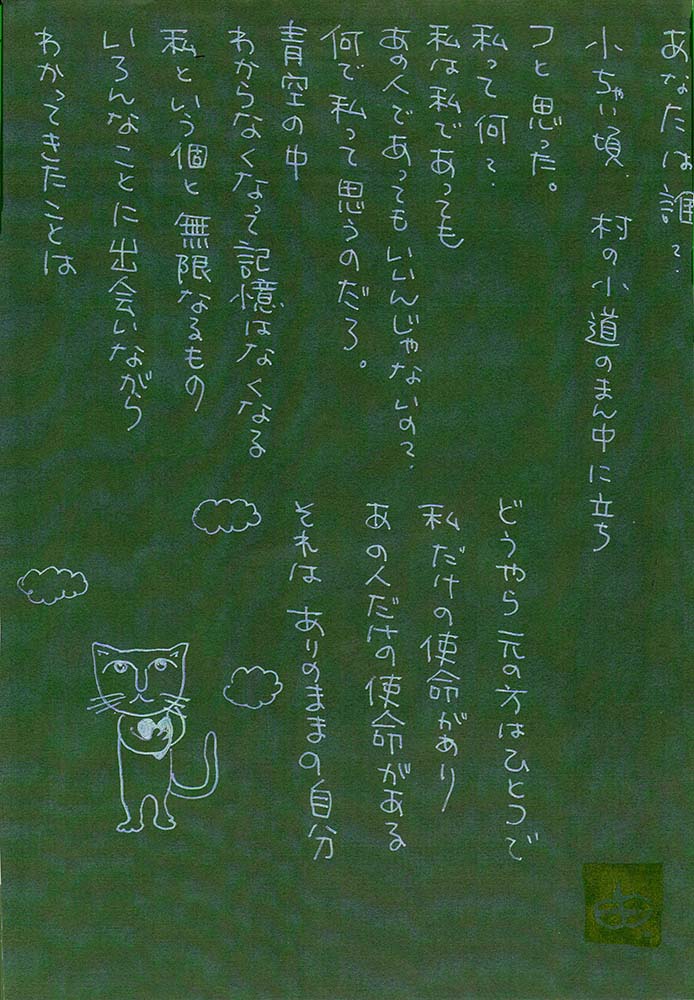 あなたは誰?
小ちゃい頃 村の小道のまん中に立ち
フと思った。
私って何?
私は私であっても
あの人であってもいいんじゃないの?
何で私って思うのだろ。
青空の中
わからなくなって記憶はなくなる
私という個と無限なるもの
いろんなことに出会いながら
わかってきたことは
どうやら元の方はひとつで
私だけの使命があり
あの人だけの使命がある
それは ありのままの自分